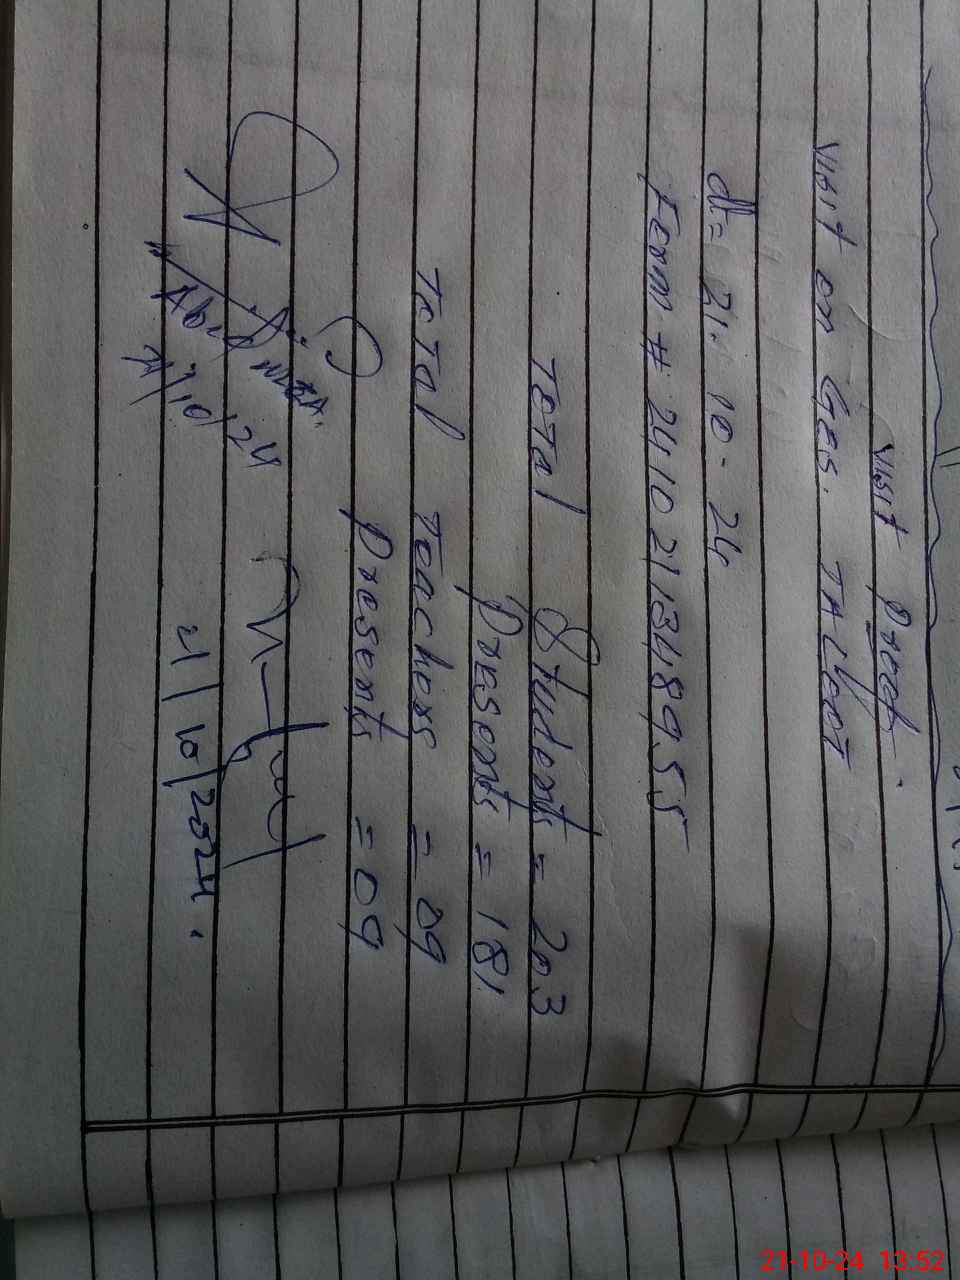 Visit Proof.
Visit on GES. TALHOOT
dt= 21. 10- 24
Form # 241021134895 5
Total Students = 203
Presents = 181
Total Teachers = 09
Presents = 09
21/10/24
21/10/2024.
21-10-24 13:52